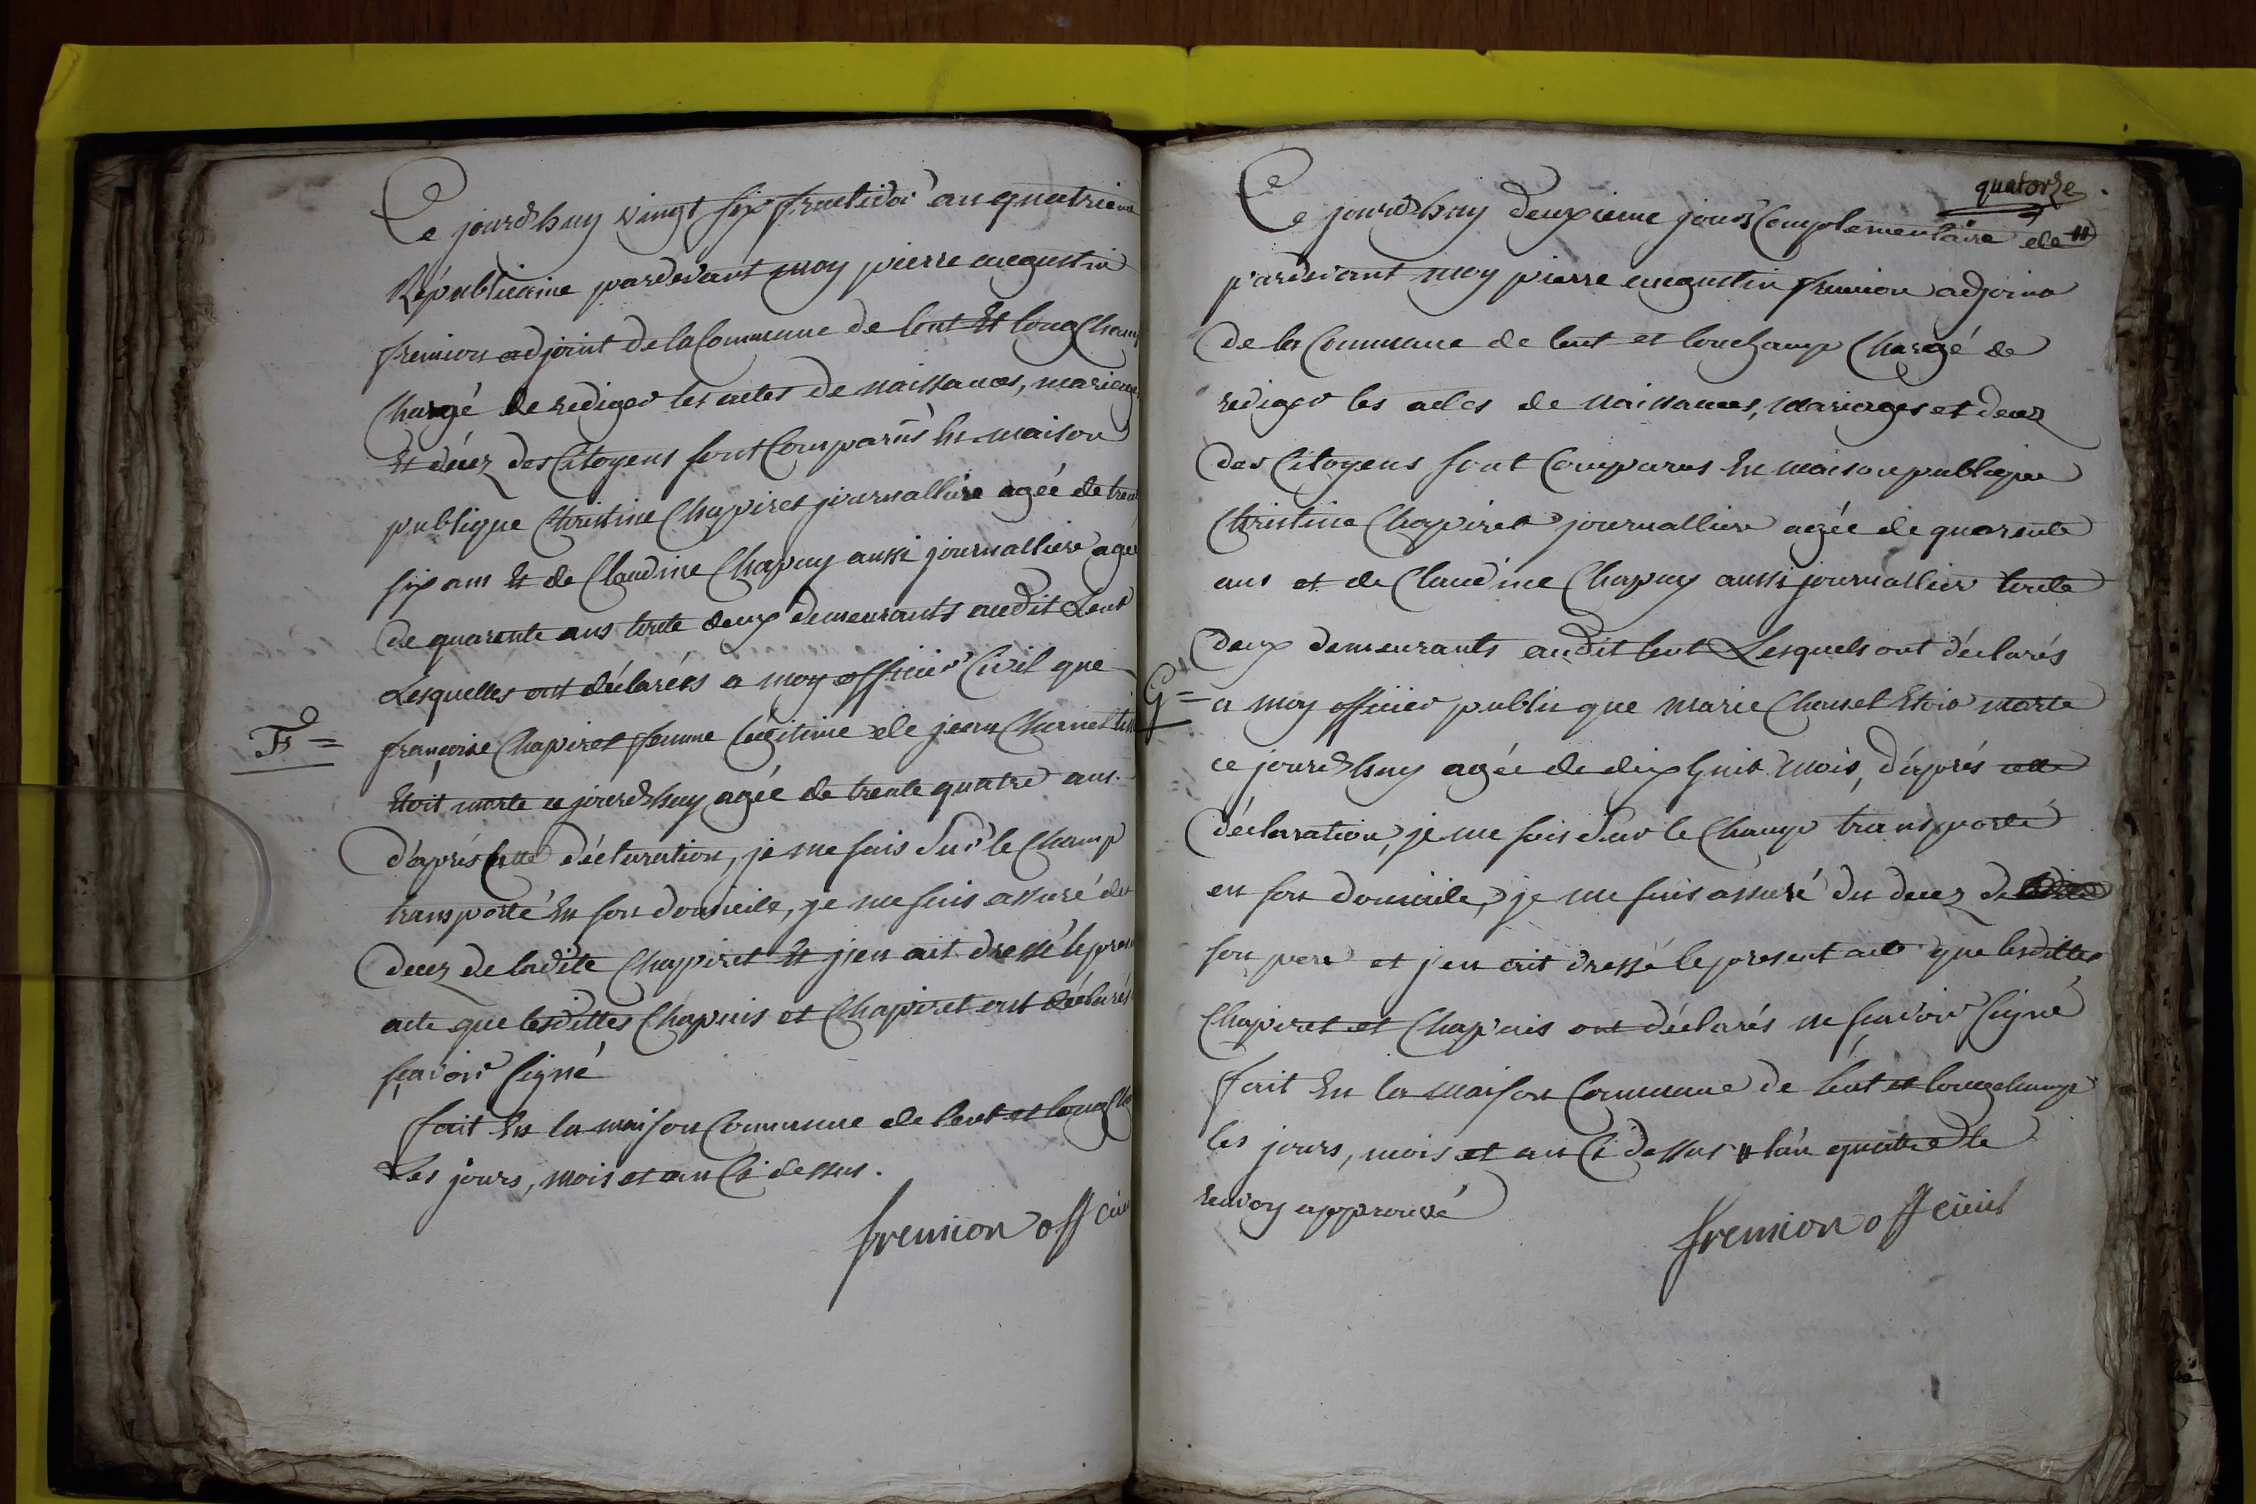 Ce jourdhuy vingt six fructidor an quatrieme
Républicaine pardevant moy pierre augustin
fremion adjoint de la Commune de lent Et longchamp
Chargé de rediger les actes de naissances, mariages
Et décez des Citoyens sont Comparus En maison
publique Christine Chapiret journalliere agée de trente
six ans Et de Claudine Chapuy aussi journalliere agée
de quarente ans toute deux demeurants audit Lent
Lesquelles ont déclarées a moy officier Civil que
F =
françoise Chapiret femme légitime de jean Charnel
Etoit morte ce jourdhuy agée de trente quatre ans.
d'aprés Cette déclaration, je me suis Sur le Champ
transporté En son domicile, je me suis assuré du
decez de ladite Chapiret Et j'en ait dressé le present
acte que lesdittes Chapuis et Chapiret ont déclarés
sçavoir signé
fait En la maison Commune de lent et long
Les jours, mois et an Ci dessus.
fremion off civil
quatorze
Ce jourdhuy deuxieme jours Complementaire de #
pardevant moy pierre augustin fremion adjoint
de la Commune de lent et lonchamp Chargé de
rediger les actes de naissances, mariages et decez
des Citoyens sont Comparus En maison publique
Christine Chapiret journalliere agée de quarente
ans et de Claudine Chapuy aussi journallier toute
deux demeurants audit lent Lesquels ont déclarés
G =
a moy officier public que marie Charnel Etoit morte
ce jourdhuy agée de dix huit mois, d'aprés cette
déclaration, je me suis Sur le Champ transporté
en son domicile, je me suis assuré du decez de
son pere et j'en ait dressé le present acte que lesdittes
Chapiret et Chapuis ont déclarés ne sçavoir signé
fait En la maison Commune de lent et longchamp
les jours, mois et an Ci dessus # l'an quatre le
renvoy approuvé
fremion off civil